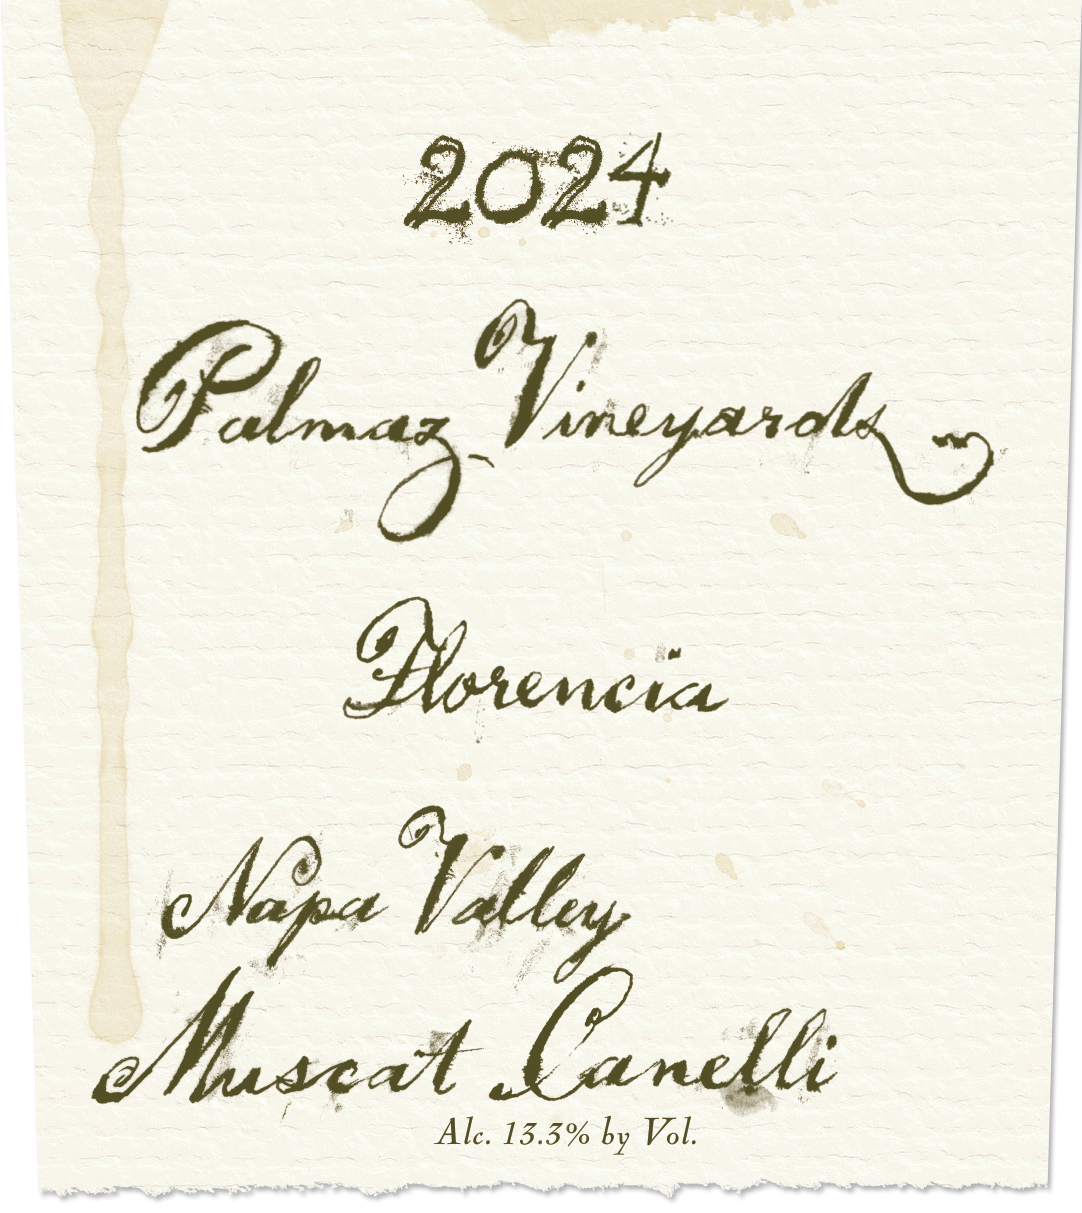 2024
Palmaz Vineyards
Florencia
Napa Valley
Muscat Canelli
Alc. 13.3% by Vol.